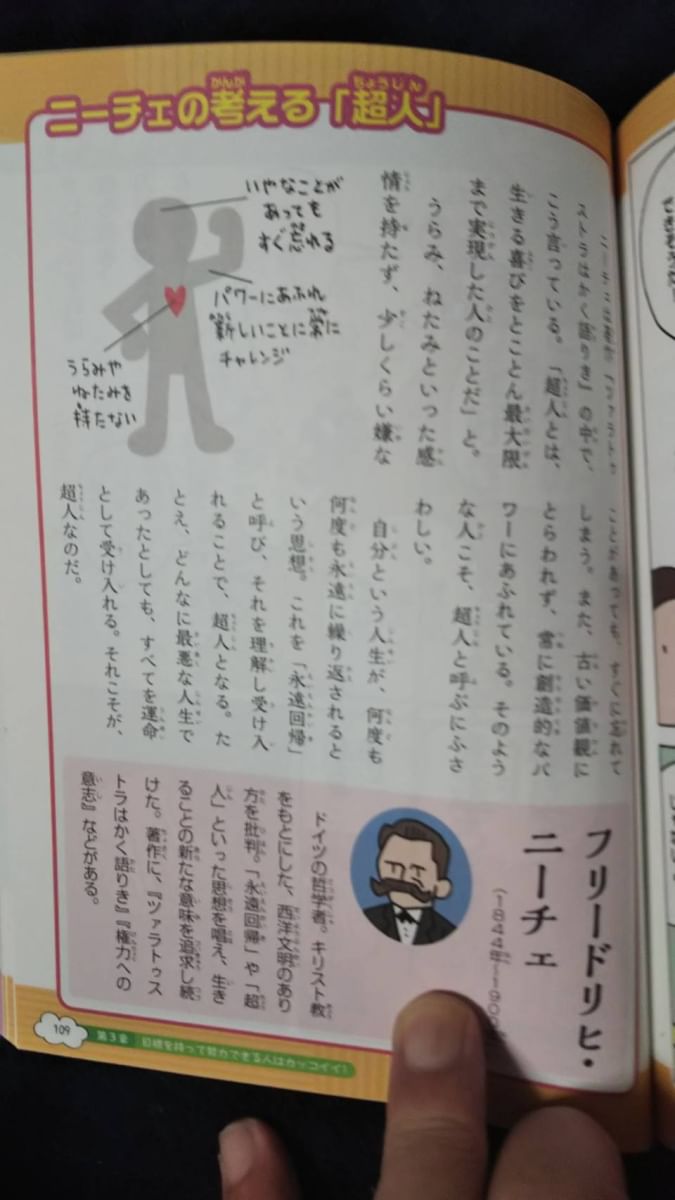 ニーチェの考える「超人」
ニーチェは著作『ツァラトゥ
ストラはかく語りき』の中で、
こう言っている。「超人とは、
生きる喜びをとことん最大限
まで実現した人のことだ」と。
うらみ、ねたみといった感
情を持たず、少しくらい嫌な
ことがあっても、すぐに忘れて
しまう。また、古い価値観に
とらわれず、常に創造的なパ
ワーにあふれている。そのよう
な人こそ、超人と呼ぶにふさ
わしい。
自分という人生が、何度も
何度も永遠に繰り返されると
いう思想。これを「永遠回帰」
と呼び、それを理解し受け入
れることで、超人となる。た
とえ、どんなに最悪な人生で
あったとしても、すべてを運命
として受け入れる。それこそが、
超人なのだ。
いやなことが
あっても
すぐ忘れる
パワーにあふれ
新しいことに常に
チャレンジ
うらみや
ねたみを
持たない
フリードリヒ・
ニーチェ
(1844年〜190
ドイツの哲学者。キリスト教
をもとにした、西洋文明のあり
方を批判。「永遠回帰」や「超
人」といった思想を唱え、生き
ることの新たな意味を追求し続
けた。著作に、『ツァラトゥス
トラはかく語りき』『権力への
意志』などがある。
109
第3章 目標を持って努力できる人はカッコイイ!